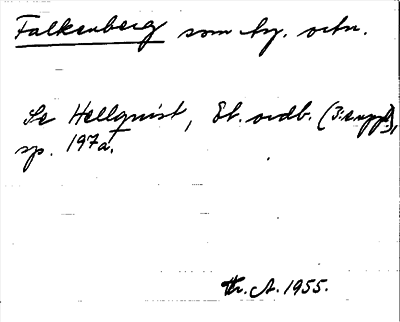 Falkenberg som hy. ortn.
Se Hellquist, Et. ordb. (3:e uppl.),
sp. 197 a.
Th. A. 1955.